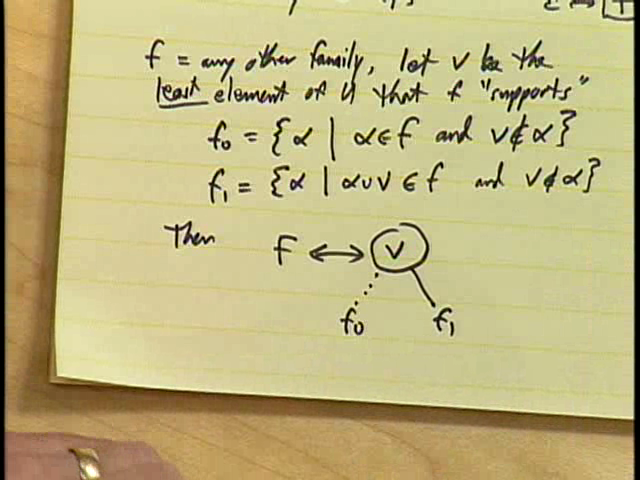 f = any other family, let v be the
least element of U that f "supports"
f₀ = {α | α∈f and v∉α}
f₁ = {α | α∪v ∈ f and v∉α}
Then f ↔ v
f₀ f₁